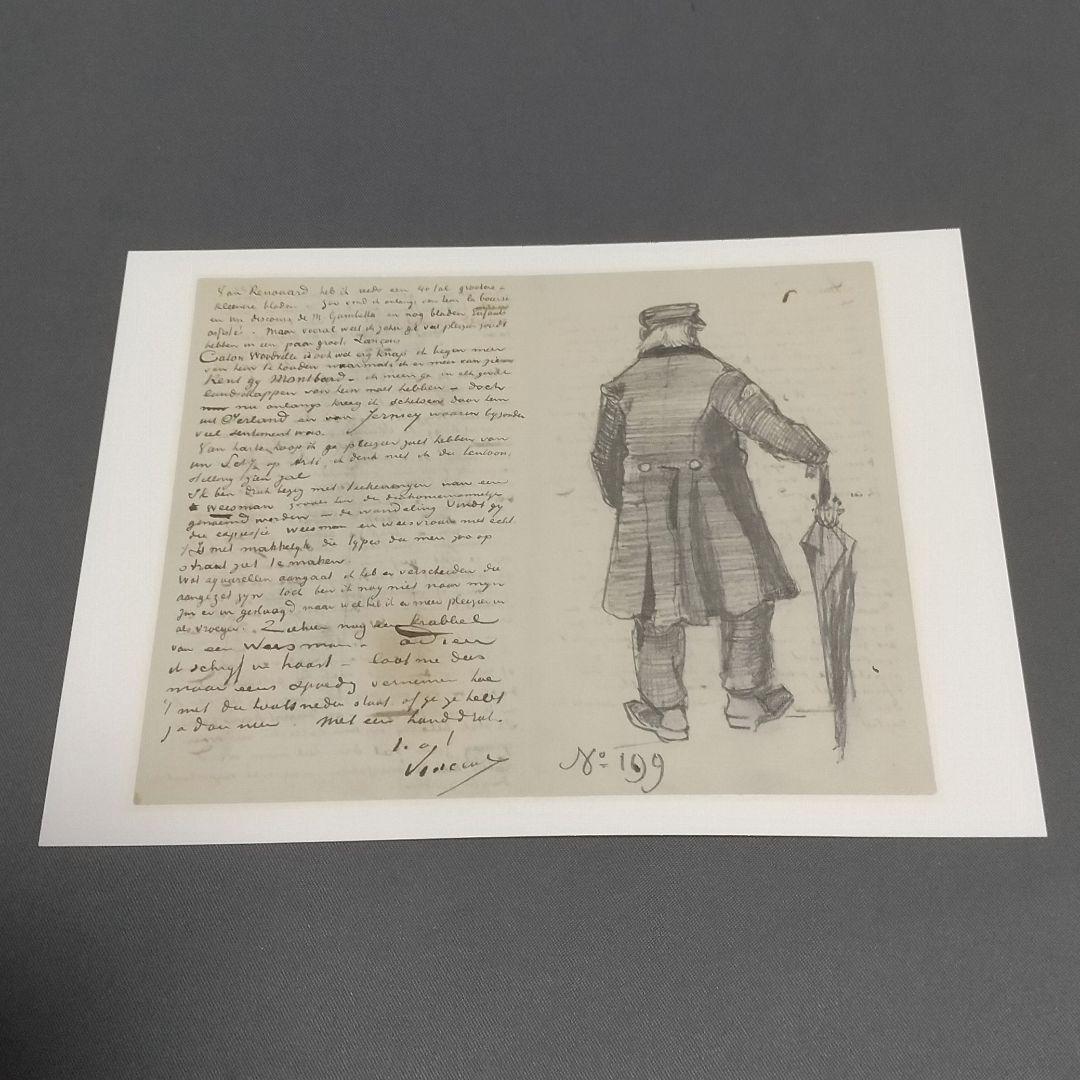 Van Renouard heb ik reeds een 40tal grootere &
kleinere bladen. Zoo vond ik onlangs van hem la bourse
en un discours de M. Gambetta en nog bladen Enfants
assistés. Maar vooral weet ik zeker gij veel pleizier zoudt
hebben in een paar groote Lançons
Caton Woodville is ook wel erg knap ik begin meer
van hem te houden naarmate ik er meer van zie
Kent gij Montbard – ik meen ge in elk geval
landschappen van hem moet hebben – doch
nu onlangs kreeg ik schetsen door hem
uit Ierland en van Jersey waarin bijzonder
veel sentiment was.
Van harte hoop ik ge pleizier zult hebben van
op Arti, ik denk niet ik die tentoon,
stelling zien zal
Ik ben druk bezig met teekeningen van een
weesman zooals hier de diakoniemannetjes
genoemd worden – de wandeling Vindt gij
die expressie weesman en weesvrouw niet echt
't Is niet makkelijk die typen die men zoo op
straat ziet te maken.
Wat aquarellen aangaat ik heb er verscheiden die
aangezet zijn toch ben ik nog niet naar mijn
zin er in geslaagd maar wel heb ik er meer pleizier in
als vroeger. Ziehier nog een krabbel
van een weesman. adieu
ik schrijf in haast – laat me dus
maar eens spoedig vernemen hoe
't met die houtsneden staat of ge ze hebt
ja dan neen. Met een handdruk.
t. à t
Vincent
No 199